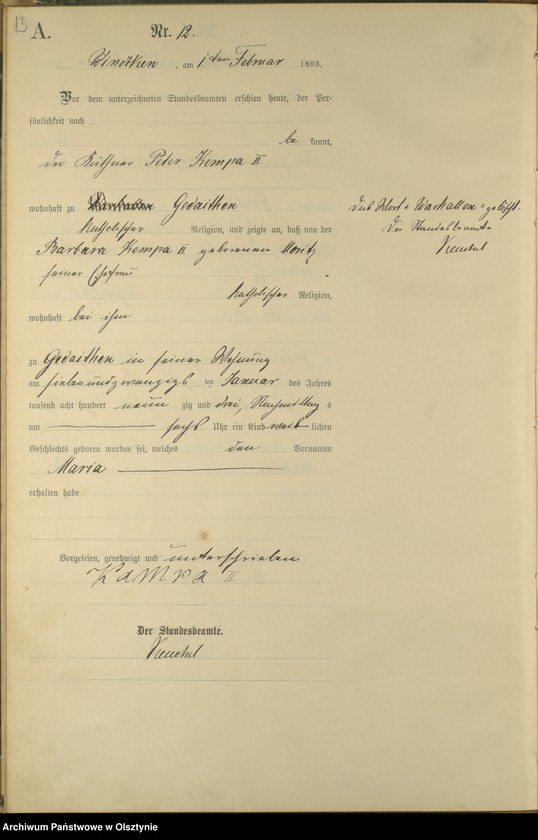 13
A.
Nr. 12.
am 1ten Februar 1893.
Vor dem unterzeichneten Standesbeamten erschien heute, der Per-
sönlichkeit nach
be kannt,
der Käthner Peter Kempa II
wohnhaft zu Gedaithen
katholischer Religion, und zeigte an, daß von der
Barbara Kempa II geborenen Moritz
seiner Ehefrau
katholischer Religion,
wohnhaft bei ihm
zu Gedaithen in seiner Wohnung
am siebenundzwanzigs ten Januar des Jahres
tausend acht hundert neun zig und drei, Nachmittag s
um sechs Uhr ein Kind weib lichen
Geschlechts geboren worden sei, welches den Vornamen
Maria
erhalten habe
Vorgelesen, genehmigt und unterschrieben
Kampa II
Der Standesbeamte.
Das Wort "Warkallen" gelöscht.
Der Standesbeamte
Archiwum Państwowe w Olsztynie